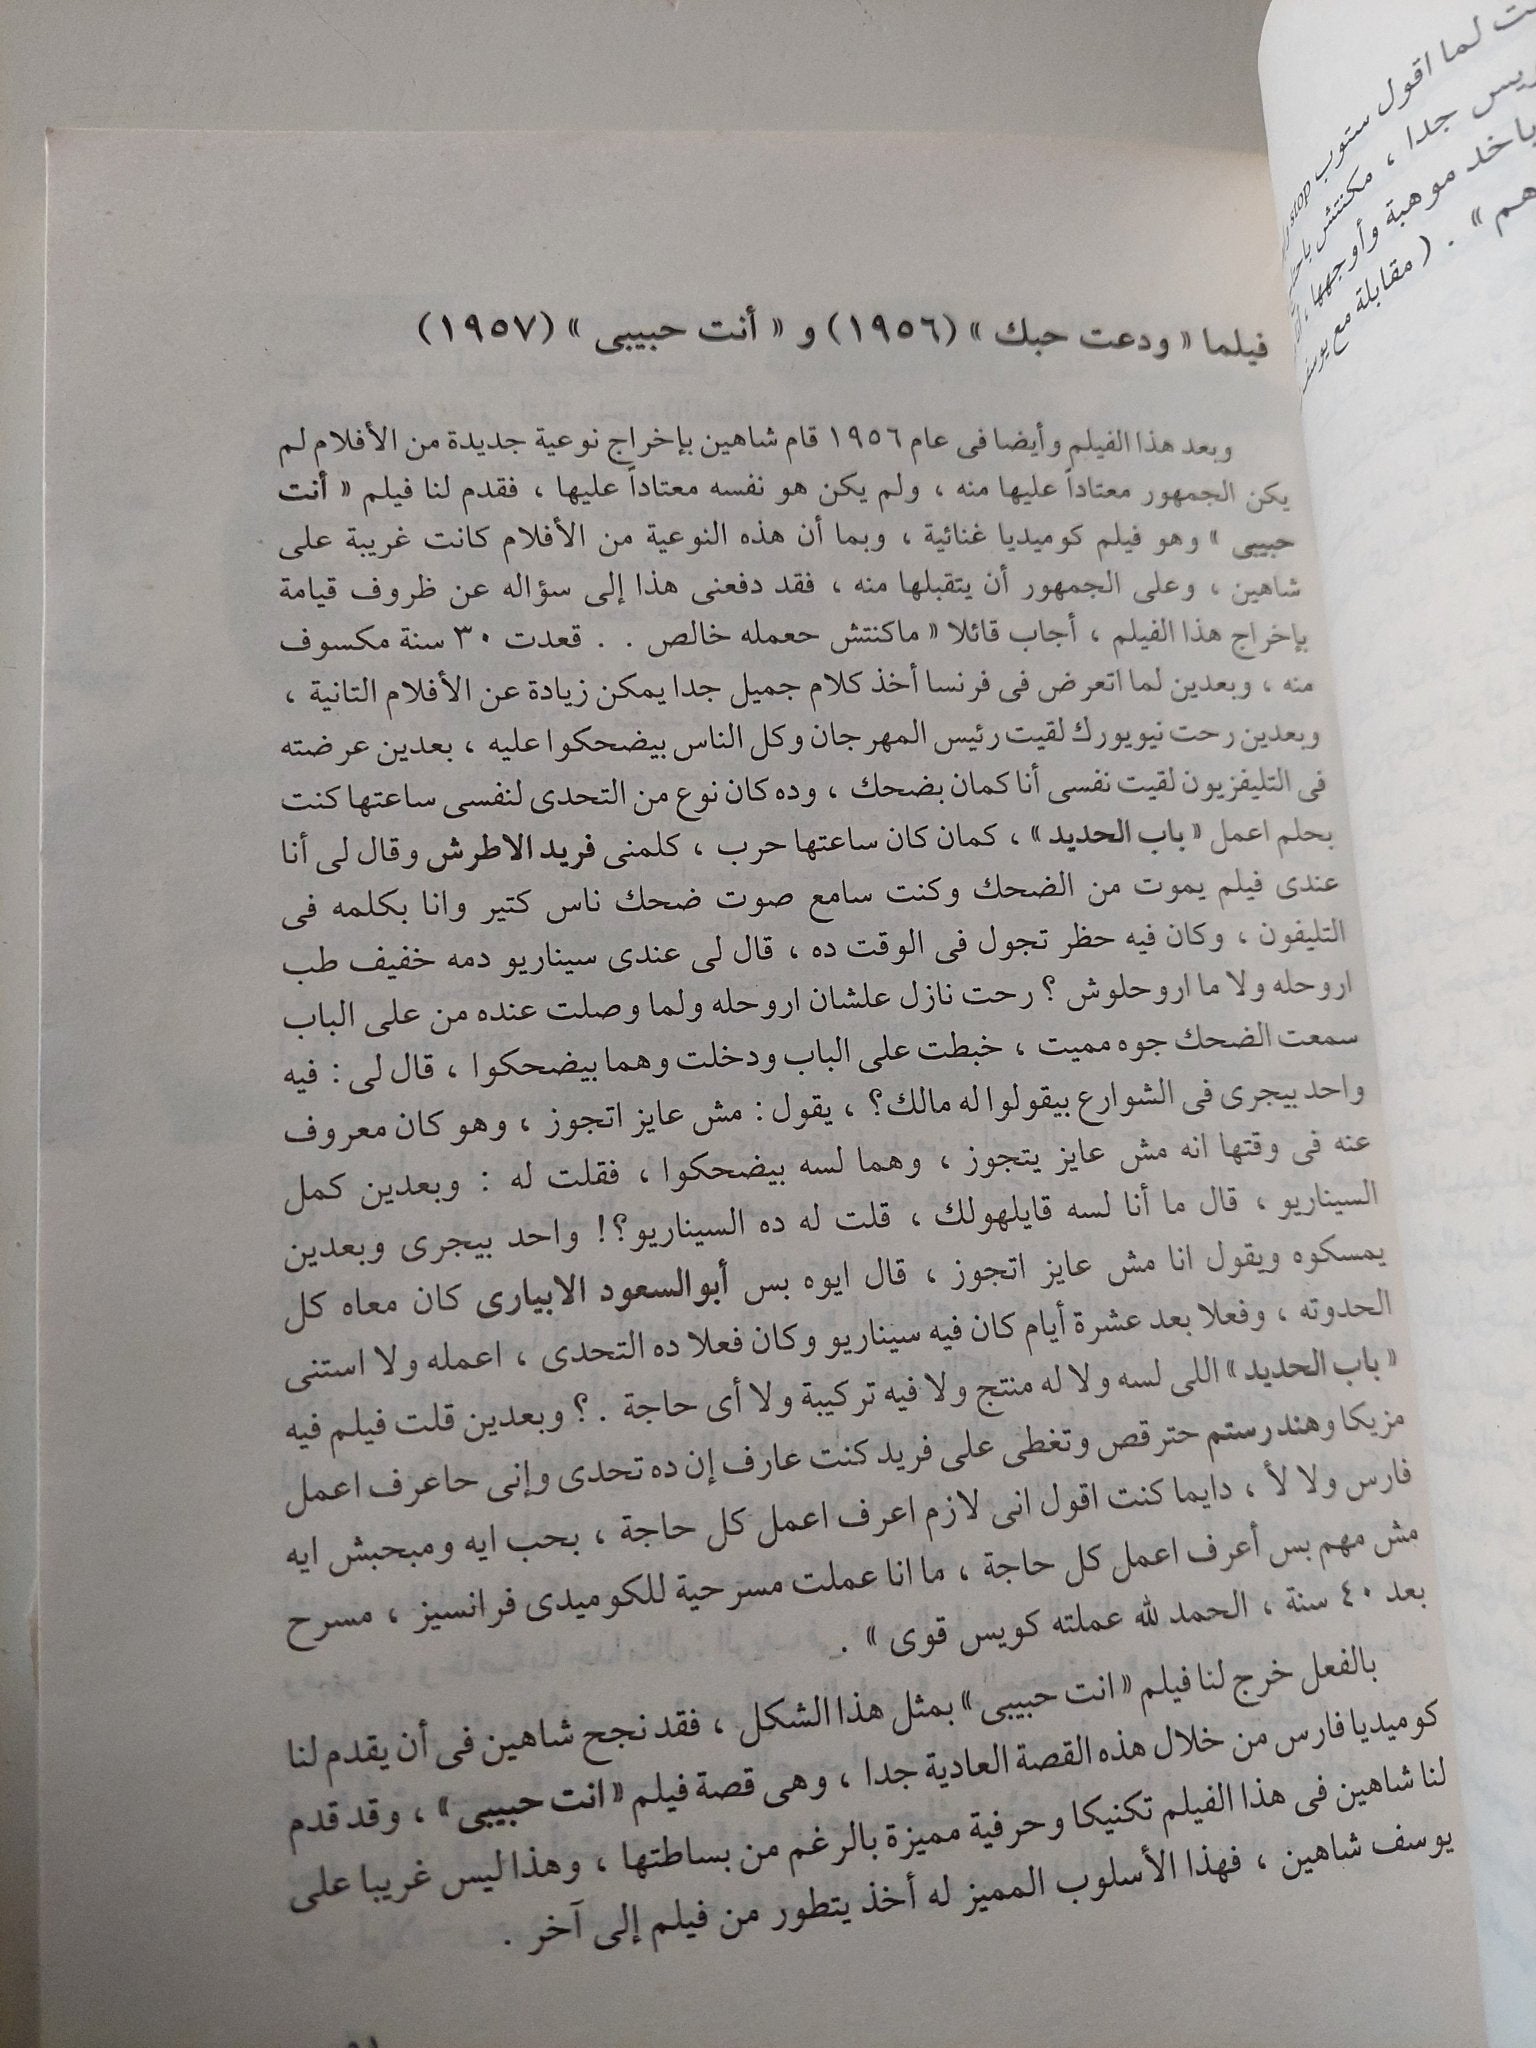 فيلما « ودعت حبك » (١٩٥٦) و « أنت حبيبى » (١٩٥٧)
وبعد هذا الفيلم وأيضا فى عام ١٩٥٦ قام شاهين بإخراج نوعية جديدة من الأفلام لم
يكن الجمهور معتاداً عليها منه ، ولم يكن هو نفسه معتاداً عليها ، فقدم لنا فيلم « أنت
حبيبى » وهو فيلم كوميديا غنائية ، وبما أن هذه النوعية من الأفلام كانت غريبة على
شاهين ، وعلى الجمهور أن يتقبلها منه ، فقد دفعنى هذا إلى سؤاله عن ظروف قيامة
بإخراج هذا الفيلم ، أجاب قائلا « ماكنتش حعمله خالص . . قعدت ٣٠ سنة مكسوف
منه ، وبعدين لما اتعرض فى فرنسا أخذ كلام جميل جدا يمكن زيادة عن الأفلام التانية ،
وبعدين رحت نيويورك لقيت رئيس المهرجان وكل الناس بيضحكوا عليه ، بعدين عرضته
فى التليفزيون لقيت نفسى أنا كمان بضحك ، وده كان نوع من التحدى لنفسى ساعتها كنت
بحلم اعمل « باب الحديد » ، كمان كان ساعتها حرب ، كلمنى فريد الاطرش وقال لى أنا
عندى فيلم يموت من الضحك وكنت سامع صوت ضحك ناس كتير وانا بكلمه فى
التليفون ، وكان فيه حظر تجول فى الوقت ده ، قال لى عندى سيناريو دمه خفيف طب
اروحله ولا ما اروحلوش ؟ رحت نازل علشان اروحله ولما وصلت عنده من على الباب
سمعت الضحك جوه مميت ، خبطت على الباب ودخلت وهما بيضحكوا ، قال لى : فيه
واحد بيجرى فى الشوارع بيقولوا له مالك؟ ، يقول : مش عايز اتجوز ، وهو كان معروف
عنه فى وقتها انه مش عايز يتجوز ، وهما لسه بيضحكوا ، فقلت له : وبعدين كمل
السيناريو ، قال ما أنا لسه قايلهولك ، قلت له ده السيناريو؟! واحد بيجرى وبعدين
يمسكوه ويقول انا مش عايز اتجوز ، قال ايوه بس أبو السعود الابيارى كان معاه كل
الحدوته ، وفعلا بعد عشرة أيام كان فيه سيناريو وكان فعلا ده التحدى ، اعمله ولا استنى
« باب الحديد » اللى لسه ولا له منتج ولا فيه تركيبة ولا أى حاجة . ؟ وبعدين قلت فيلم فيه
مزيكا وهند رستم حترقص وتغطى على فريد كنت عارف إن ده تحدى وإنى حاعرف اعمل
فارس ولا لأ ، دايما كنت اقول انى لازم اعرف اعمل كل حاجة ، بحب ايه ومبحبش ايه
مش مهم بس أعرف اعمل كل حاجة ، ما انا عملت مسرحية للكوميدى فرانسيز ، مسرح
بعد ٤٠ سنة ، الحمد لله عملته كويس قوى » .
بالفعل خرج لنا فيلم « انت حبيبى » بمثل هذا الشكل ، فقد نجح شاهين فى أن يقدم لنا
كوميديا فارس من خلال هذه القصة العادية جدا ، وهى قصة فيلم « انت حبيبى » ، وقد قدم
لنا شاهين فى هذا الفيلم تكنيكا وحرفية مميزة بالرغم من بساطتها ، وهذا ليس غريبا على
يوسف شاهين ، فهذا الأسلوب المميز له أخذ يتطور من فيلم إلى آخر .
لما اقول ستوب stop
جدا ، مكنتش
ياخد موهبة وأوجهها
هم » . ( مقابلة مع